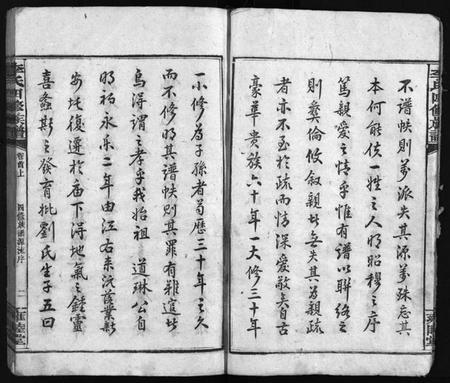 不譜帙則萬派失其源萬殊忘其
本何能使一姓之人明昭穆之序
篤親愛之情乎惟有譜以聯絡之
則彝倫攸敘親者無失其為親疏
者亦不至於疏而情深愛敬矣自古
豪華貴族六十年一大修三十年
一小修為子孫者苟歷三十年之久
而不修明其譜帙則其罪有難逭者
烏得謂之孝乎我始祖道琳公自
明初永樂二年由江右來沅落業新
安坨復遷於庙下得地氣之鍾靈
喜螽斯之發育批劉氏生子五曰
李氏四修族譜
卷首上
四修族譜源流序
二